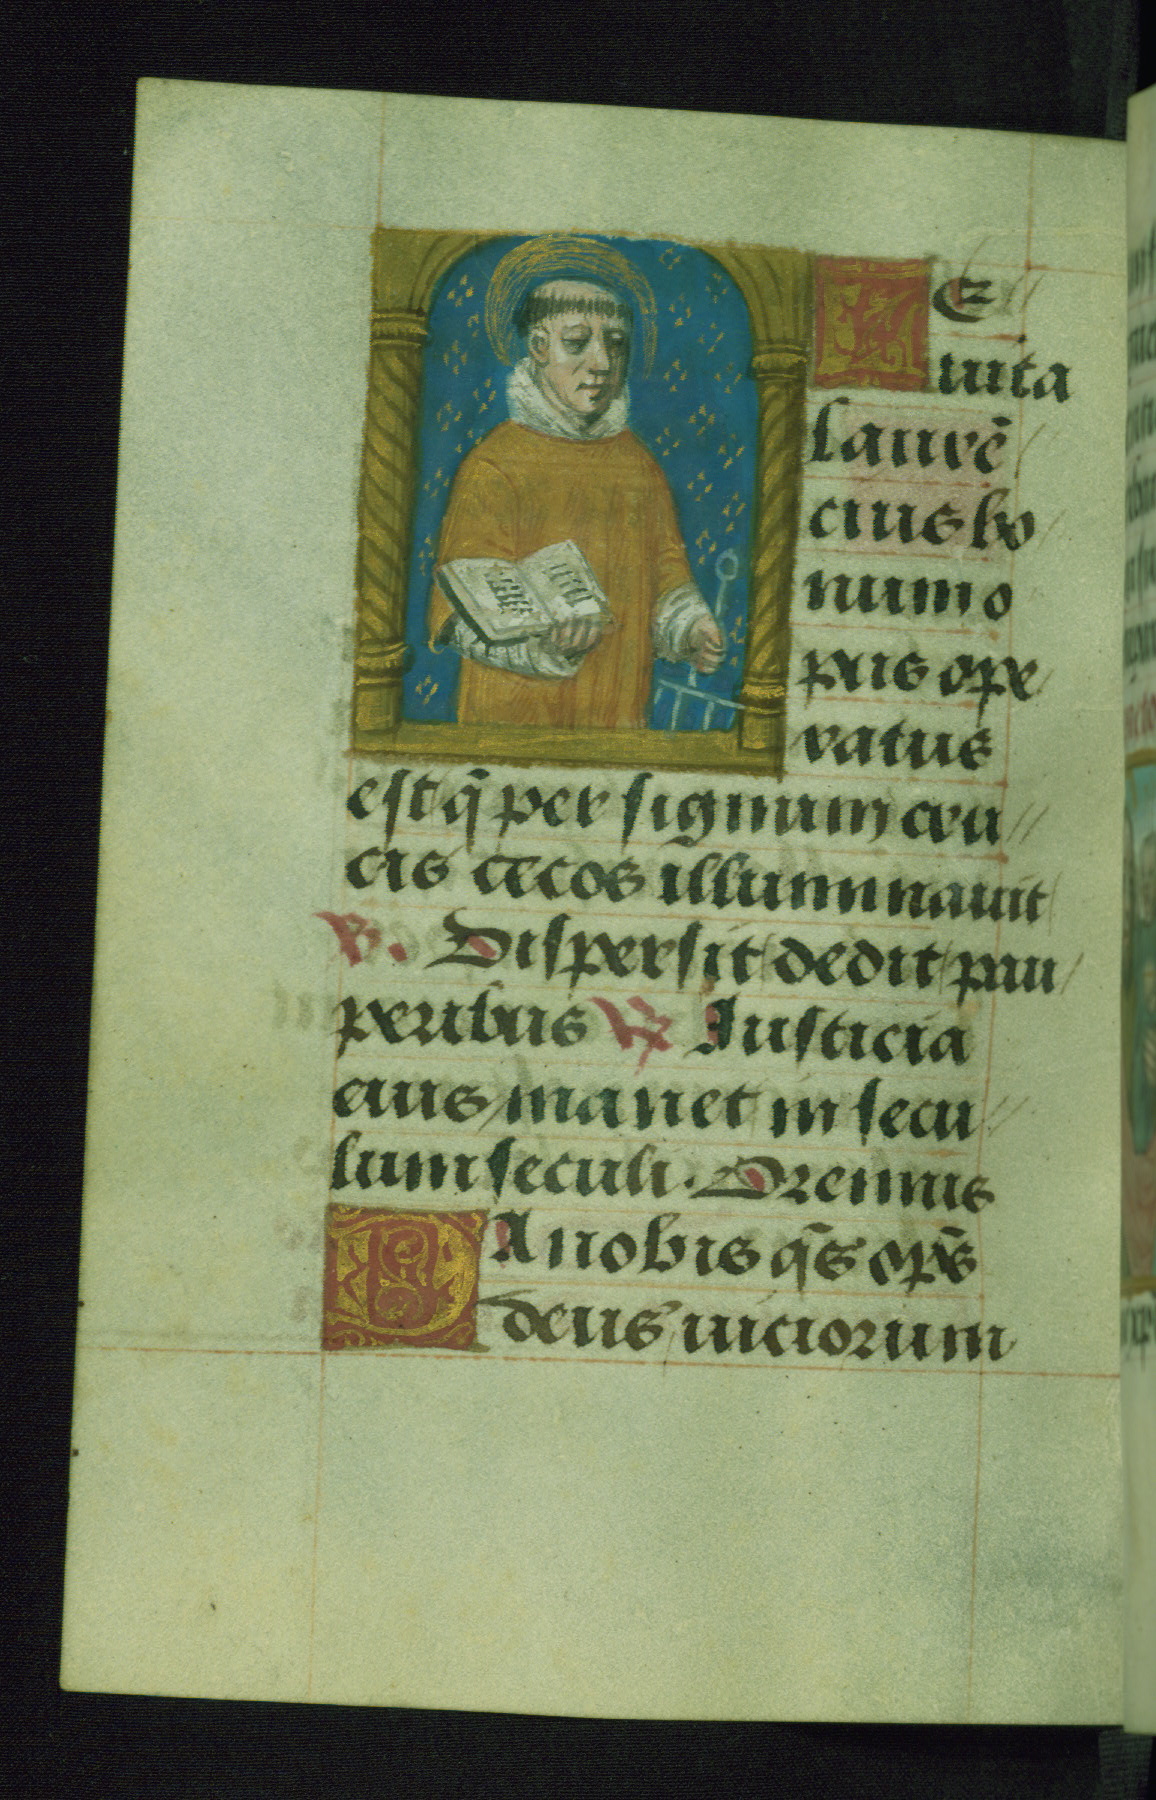 LE
uita
laurē
cius bo
num o
pus ope
ratus
est q̄ per signum cru
cis cecos illuminauit
V. Dispersit dedit pau
peribus R Iusticia
eius manet in secu
lum seculi. Oremus
DA nobis qs̄ op̄s
deus uiciorum